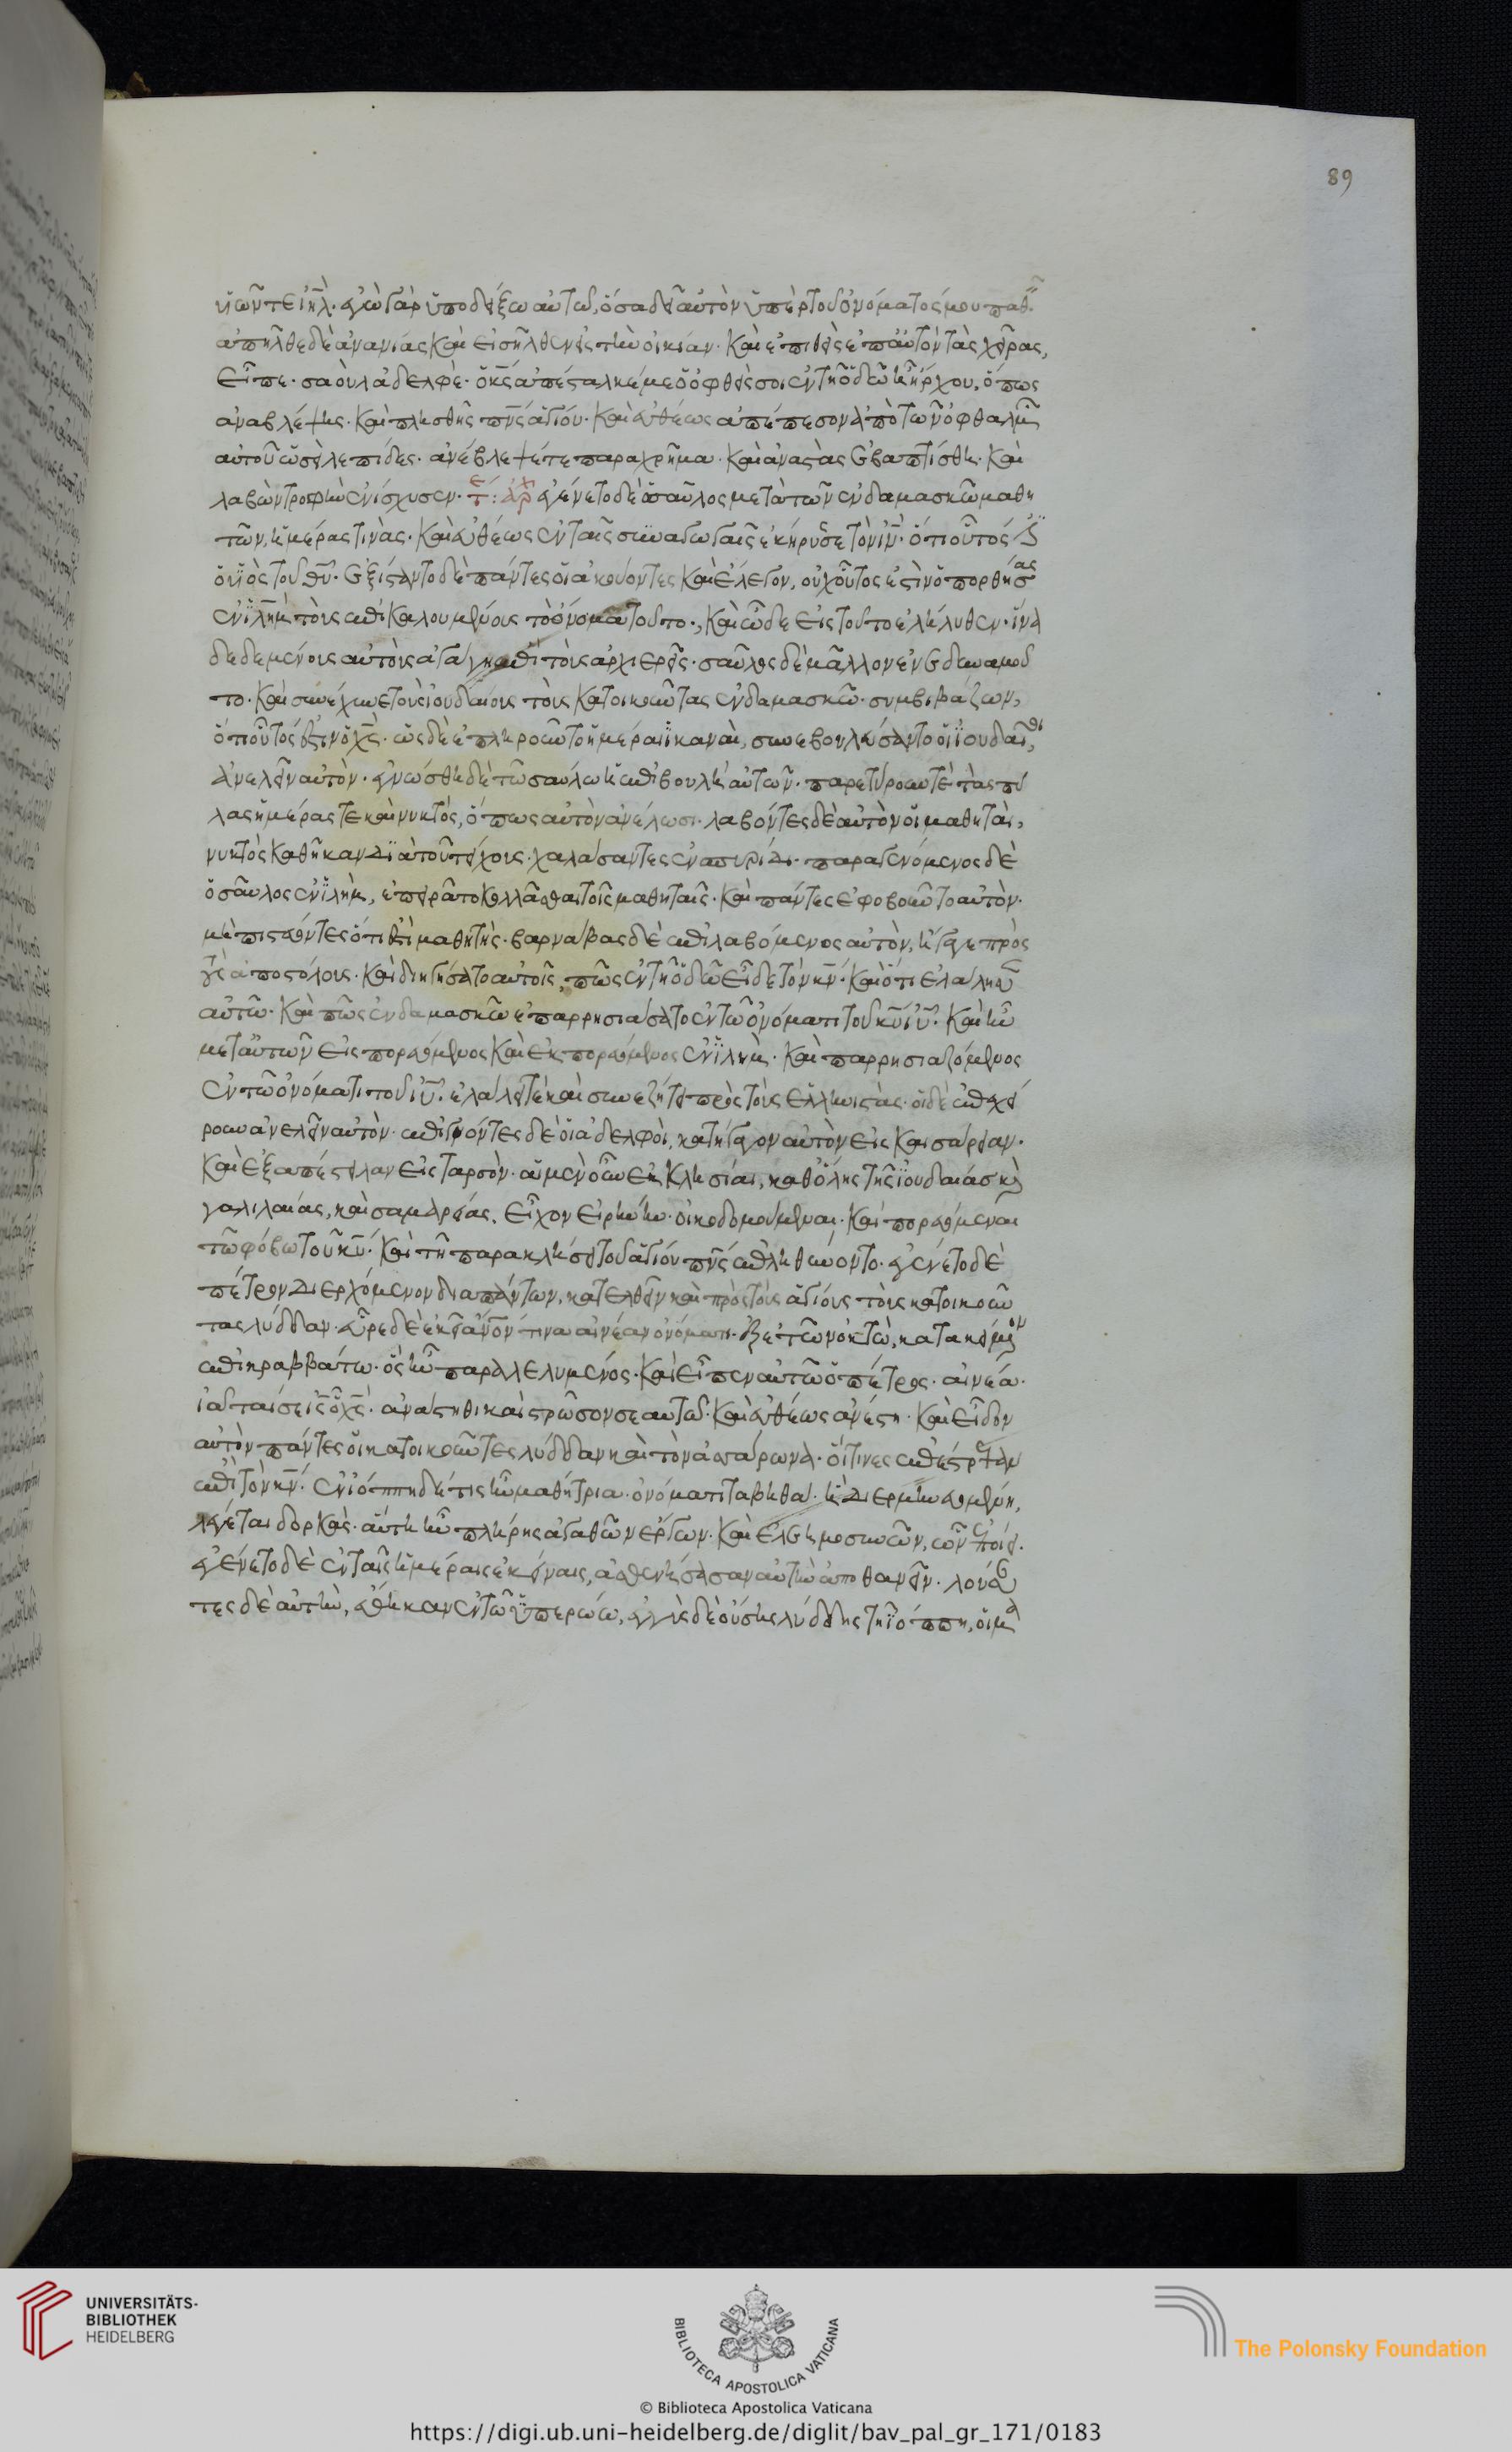 89
υἱῶν τε ἰηλ̄· ἐγὼ γὰρ ὑποδείξω αὐτῶ, ὅσα δεῖ αὐτὸν ὑπὲρ τοῦ ὀνόματός μου παθεῖν·
ἀπῆλθε δὲ ἀνανίας καὶ εἰσῆλθεν εἰς τὴν οἰκίαν· καὶ ἐπιθεὶς ἐπ' αὐτὸν τὰς χεῖρας,
εἶπε· σαοὺλ ἀδελφὲ· ὁ κς̄ ἀπέσταλκέ με ὁ ὀφθείς σοι ἐν τῆ ὁδῶ ἧ ἤρχου, ὅπως
ἀναβλέψης· καὶ πλησθῆς πνς̄ ἁγίου· καὶ εὐθέως ἀπέπεσον ἀπὸ τῶν ὀφθαλμῶν
αὐτοῦ ὡσεὶ λεπίδες· ἀνέβλεψέ τε παραχρῆμα· καὶ ἀναστὰς ἐβαπτίσθη· καὶ
λαβὼν τροφὴν ἐνίσχυσεν· τέ: ἀρχ ἐγένετο δὲ ὁ σαῦλος μετὰ τῶν ἐν δαμασκῶ μαθη
τῶν, ἡμέρας τινάς· καὶ εὐθέως ἐν ταῖς συναγωγαῖς ἐκήρυσσε τὸν ιν̄· ὅτι οὗτός ἐστιν
ὁ υἱὸς τοῦ θῡ· ἐξίσταντο δὲ πάντες οἱ ἀκούοντες καὶ ἔλεγον, οὐχ οὗτος ἐστὶν ὁ πορθήσας
ἐν ἰλημ̄ τοὺς ἐπικαλουμένους τὸ ὄνομα τοῦτο·, καὶ ὧδε εἰς τοῦτο ἐλήλυθεν· ἵνα
δεδεμένους αὐτοὺς ἀγάγη ἐπὶ τοὺς ἀρχιερεῖς· σαῦλος δὲ μᾶλλον ἐνεδυναμοῦ
το· καὶ συνέχυνε τοὺς ἰουδαίους τοὺς κατοικοῦντας ἐν δαμασκῶ· συμβιβάζων,
ὅτι οὗτός ἐστιν ὁ χς̄· ὡς δὲ ἐπληροῦντο ἡμέραι ἱκαναὶ, συνεβουλεύσαντο οἱ ἰουδαῖοι,
ἀνελεῖν αὐτὸν· ἐγνώσθη δὲ τῶ σαύλω ἡ ἐπιβουλὴ αὐτῶν· παρετήρουν τὲ τὰς πύ
λας ἡμέρας τε καὶ νυκτὸς, ὅπως αὐτὸν ἀνέλωσι· λαβόντες δὲ αὐτὸν οἱ μαθηταὶ,
νυκτὸς καθῆκαν διὰ τοῦ τείχους· χαλάσαντες ἐν σπυρίδι· παραγενόμενος δὲ
ὁ σαῦλος ἐν ἰλημ̄, ἐπειρᾶτο κολλᾶσθαι τοῖς μαθηταῖς· καὶ πάντες ἐφοβοῦντο αὐτὸν·
μὴ πιστεύοντες ὅτι ἐστὶ μαθητής· βαρνάβας δὲ ἐπιλαβόμενος αὐτὸν, ἤγαγε πρὸς
τοὺς ἀποστόλους· καὶ διηγήσατο αὐτοῖς, πῶς ἐν τῆ ὁδῶ εἶδε τὸν κν̄· καὶ ὅτι ἐλάλησεν
αὐτῶ· καὶ πῶς ἐν δαμασκῶ ἐπαρρησιάσατο ἐν τῶ ὀνόματι τοῦ κῡ ιῡ· καὶ ἦν
μετ' αὐτῶν εἰσπορευόμενος καὶ ἐκπορευόμενος ἐν ἰλημ̄· καὶ παρρησιαζόμενος
ἐν τῶ ὀνόματι τοῦ ιῡ· ἐλάλει τὲ καὶ συνεζήτει πρὸς τοὺς ἑλληνιστὰς· οἱ δὲ ἐπεχεί
ρουν ἀνελεῖν αὐτὸν· ἐπιγνόντες δὲ οἱ ἀδελφοὶ, κατήγαγον αὐτὸν εἰς καισάρειαν·
καὶ ἐξαπέστειλαν εἰς ταρσὸν· αἱ μὲν οὖν ἐκκλησίαι, καθ' ὅλης τῆς ἰουδαίας καὶ
γαλιλαίας, καὶ σαμαρείας, εἶχον εἰρήνην· οἰκοδομούμεναι· καὶ πορευόμεναι
τῶ φόβω τοῦ κῡ· καὶ τῆ παρακλήσει τοῦ ἁγίου πνς̄ ἐπληθύνοντο· ἐγένετο δὲ
πέτρον διερχόμενον διὰ πάντων, κατελθεῖν καὶ πρὸς τοὺς ἁγίους τοὺς κατοικοῦν
τας λύδδαν· εὗρε δὲ ἐκεῖ ἄνον̄ τινα αἰνέαν ὀνόματι· ἐξ ἐτῶν ὀκτὼ, κατακείμενον
ἐπὶ κραββάτω· ὃς ἦν παραλελυμένος· καὶ εἶπεν αὐτῶ ὁ πέτρος· αἰνέα·
ἰᾶταί σε ις̄ ὁ χς̄· ἀνάστηθι καὶ στρῶσον σεαυτῶ· καὶ εὐθέως ἀνέστη· καὶ εἶδον
αὐτὸν πάντες οἱ κατοικοῦντες λύδδαν καὶ τὸν ἀσάρωνα· οἵτινες ἐπέστρεψαν
ἐπὶ τὸν κν̄· ἐν ἰόππη δέ τις ἦν μαθήτρια· ὀνόματι ταβηθά· ἣ διερμηνευομένη,
λέγεται δορκὰς· αὕτη ἦν πλήρης ἀγαθῶν ἔργων· καὶ ἐλεημοσυνῶν, ὧν ἐποίει·
ἐγένετο δὲ ἐν ταῖς ἡμέραις ἐκείναις, ἀσθενήσασαν αὐτὴν ἀποθανεῖν· λούσαν
τες δὲ αὐτὴν, ἔθηκαν ἐν τῶ ὑπερώω, ἐγγὺς δὲ οὔσης λύδδης τῆ ἰόππη, οἱ μα
UNIVERSITÄTS-
BIBLIOTHEK
HEIDELBERG
BIBLIOTECA APOSTOLICA VATICANA
The Polonsky Foundation
© Biblioteca Apostolica Vaticana
https://digi.ub.uni-heidelberg.de/diglit/bav_pal_gr_171/0183